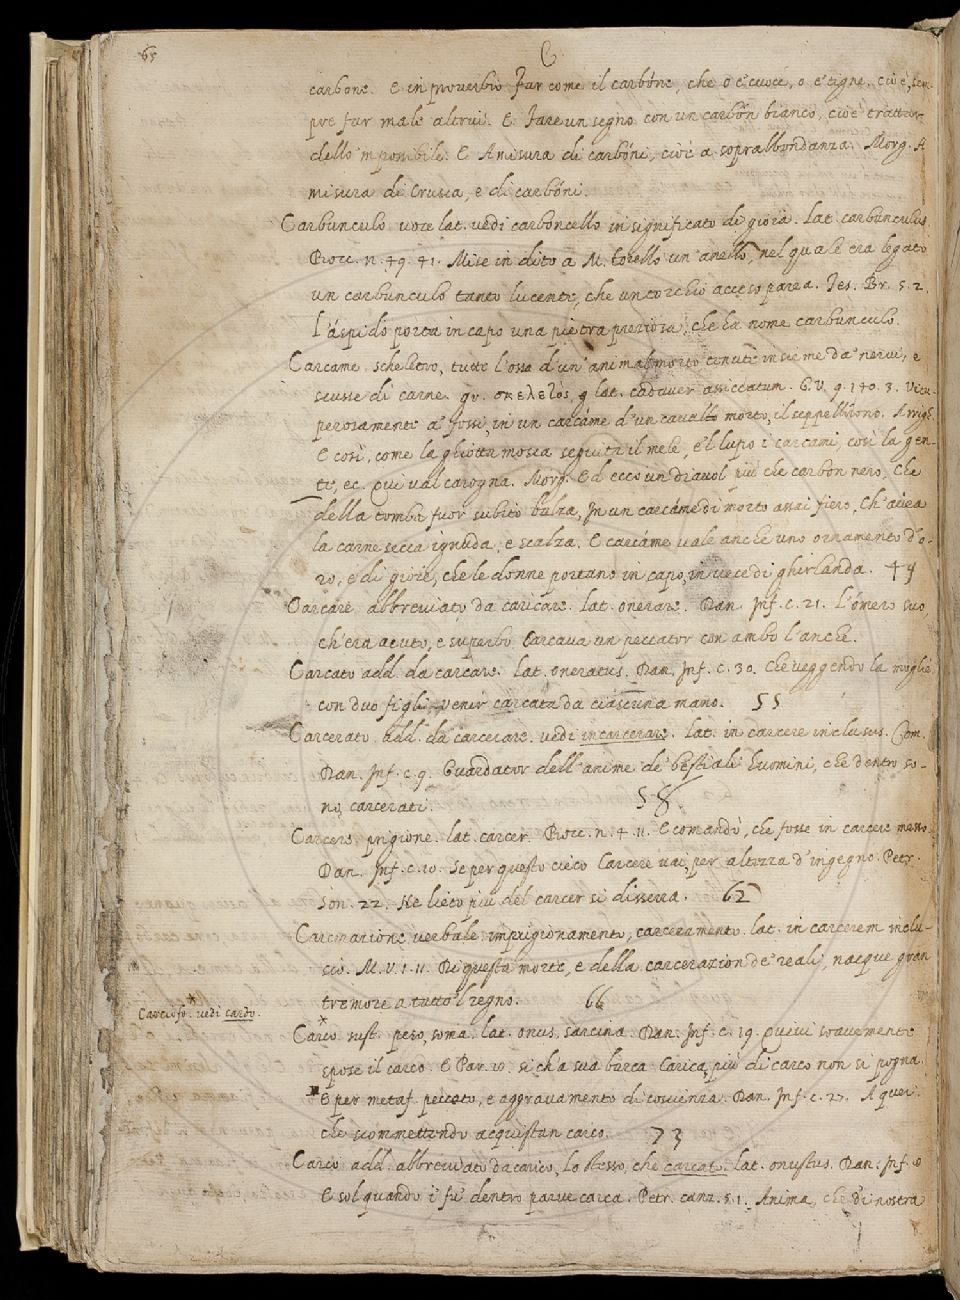 65
C
carbone. E in proverbio Far come il carbóne, che o e' cuoce, o e' tigne. cioè, sem-
pre far male altrui. E. Fare un segno con un carbón bianco, cioè trattan-
dello imposibile. E A misura di carbóni, cioè a soprabbondanza. Morg. A
misura di Crusca, e di carbóni.
Carbunculo voce lat. vedi carboncello in significato di gioia. Lat. carbunculus
Bocc. n. 99. 41. Mise in dito a M. torello un anello, nel quale era legato
un carbunculo tanto lucente, che un torchio acceso parea. Tes. Br. 5. 2.
L'áspido porta in capo una pietra preziosa, che ha nome carbunculo.
Carcame. scheletro, tutte l'ossa d'un' animal morto tenute insieme da' nervi, e
scusse di carne. gr. σκελετὸς, lat. cadaver assiccatum. G. V. 9. 140. 3. Vitu-
perosamente a' fossi, in un carcáme d'un cavallo morto, il seppellirono. Arrigh.
E così, come la ghiotta mosca seguita il mele, e'l lupo i carcami, così la gen-
te, ec. Qui val carogna. Morg. Ed ecco un diavol più che carbon nero, Che
della tomba fuor subito balza, In un carcáme di morto assai fiero, Ch' avea
la carne secca ignuda, e scalza. E carcáme vale anche uno ornamento d'o-
ro, e di gioie, che le donne portano in capo, in vece di ghirlanda. 49
Carcare abbreviato da caricare. lat. onerare. Dan. Inf. c. 21. L'ómero suo,
ch'era acuto, e superbo Carcava un peccator con ambo l'anche.
Carcato add. da carcare. lat. oneratus. Dan. Inf. c. 30. che veggendo la moglie
con duo figli venir carcata da ciascuna mano. 55
Carcerato. add. da carcerare. vedi incarcerare. lat. in carcere inclusus. Com.
Dan. Inf. c. 9. Guardator dell' anime de' bestiali huomini, che dentro so-
no carcerati. 58.
Carcere. prigione. lat. carcer. Bocc. n. 4. 11. E comandò, che fosse in carcere messo.
Dan. Inf. c. 10. Se per questo cieco Carcere vai, per altezza d'ingegno. Petr.
Son. 22. Ne lieto più del carcer si disserra. 62
Carcerazione verbale imprigionamento, carceramento. lat. in carcerem inclu-
sio. M. V. 1. 11. Di questa morte, e della carcerazion de' reali, nacque gran
tremore a tutto'l regno. 66
* Carciofo. vedi cardo.
* Carco sust. peso, soma. lat. onus, sarcina. Dan. Inf. c. 19. Quivi soavemente
spose il carco. E Par. 10. si ch'a sua barca Carica, più di carco non si pogna.
E per metaf. peccato, e aggravamento di coscienza. Dan. Inf. c. 27. A quei
che scommettendo acquistan carco. 73
Carco add. abbreviato da carico, Lo stesso, che carcato. lat. onustus. Dan. Inf. 8
E sol quando i' fu' dentro parve carca. Petr. canz. 5. 1. Anima, che di nostra